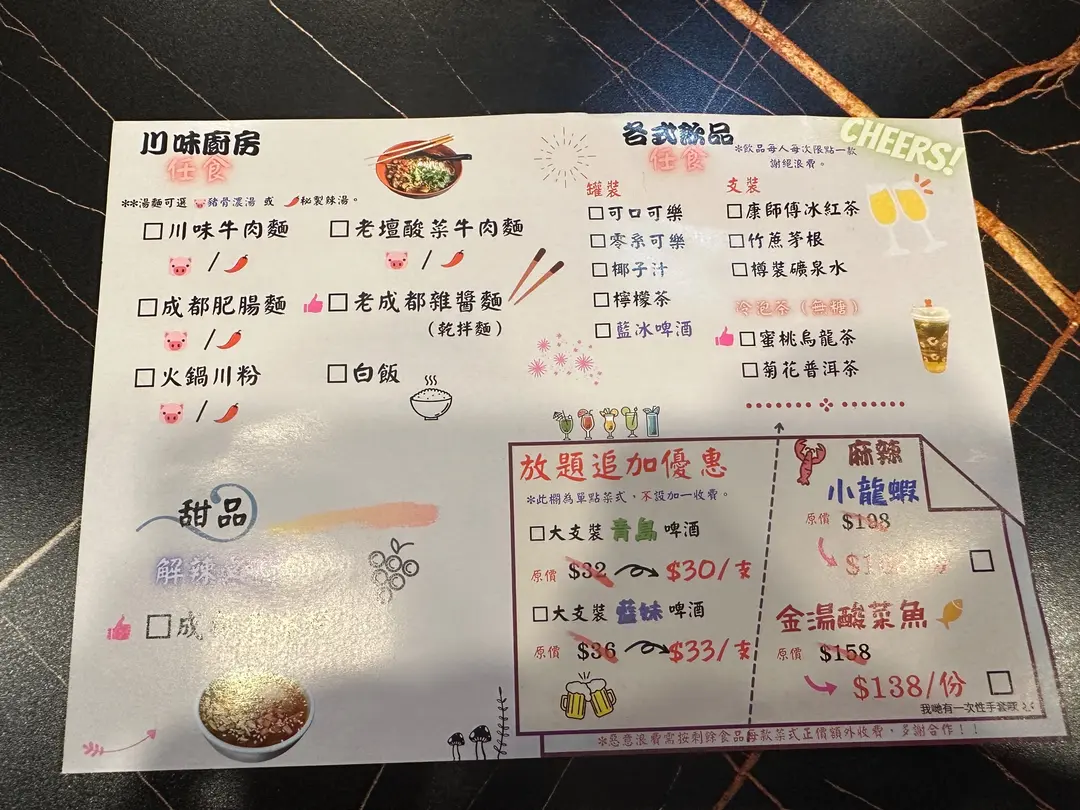 川味廚房
任食
**湯麵可選 豬骨濃湯 或 秘製辣湯。
川味牛肉麵
老壇酸菜牛肉麵
/
/
成都肥腸麵
老成都雜醬麵
(乾拌麵)
/
火鍋川粉
白飯
/
甜品
解辣
成
各式飲品
任食
*飲品每人每次限點一款
謝絕浪費。
CHEERS!
罐裝
可口可樂
零系可樂
椰子汁
檸檬茶
藍冰啤酒
支裝
康師傅冰紅茶
竹蔗茅根
樽裝礦泉水
冷泡茶(無糖)
蜜桃烏龍茶
菊花普洱茶
放題追加優惠
*此欄為單點菜式,不設加一收費。
大支裝 青島 啤酒
原價 $32 $30/支
大支裝 藍妹 啤酒
原價 $36 $33/支
麻辣
小龍蝦
原價 $198
金湯酸菜魚
原價 $158
$138/份
我哋有一次性手套㗎
*惡意浪費需按剩餘食品每款菜式正價額外收費,多謝合作!!